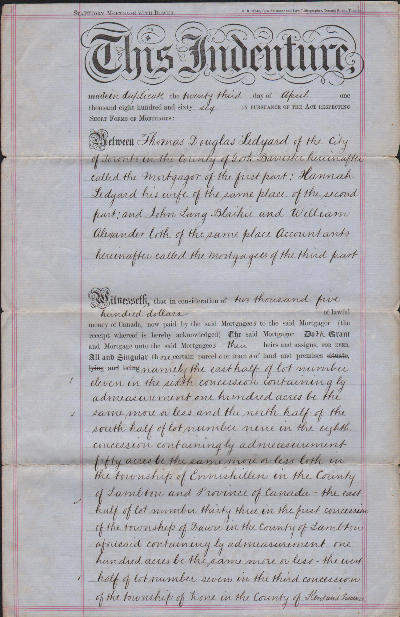 STATUTORY MORTGAGE WITH DOWER
This Indenture,
made in duplicate the twenty third day of April one
thousand eight hundred and sixty six IN PURSUANCE OF THE ACT RESPECTING
SHORT FORMS OF MORTGAGES:
Between Thomas Douglas Ledyard of the City
of Toronto in the County of York Barrister hereinafter
called the Mortgagor of the first part; Hannah
Ledyard his wife of the same place of the second
part; and John Lang Blaikie and William
Alexander both of the same place Accountants
hereinafter called the Mortgagees of the third part
Witnesseth, that in consideration of two thousand five
hundred dollars of lawful
money of Canada, now paid by the said Mortgagees to the said Mortgagor (the
receipt whereof is hereby acknowledged) The said Mortgagor Doth Grant
and Mortgage unto the said Mortgagees their heirs and assigns, FOR EVER
All and Singular those certain parcels or tracts of land and premises situate,
lying and being namely the east half of lot number
eleven in the sixth concession containing by
admeasurement one hundred acres be the
same more or less and the north half of the
south half of lot number nine in the eighth
concession containing by admeasurement
fifty acres be the same more or less both in
the township of Enniskillen in the County
of Lambton and Province of Canada - the east
half of lot number thirty three in the first concession
of the township of Dawn in the County of Lambton
aforesaid containing by admeasurement one
hundred acres be the same more or less - the west
half of lot number seven in the third concession
of the township of Zone in the County of Kent and Province